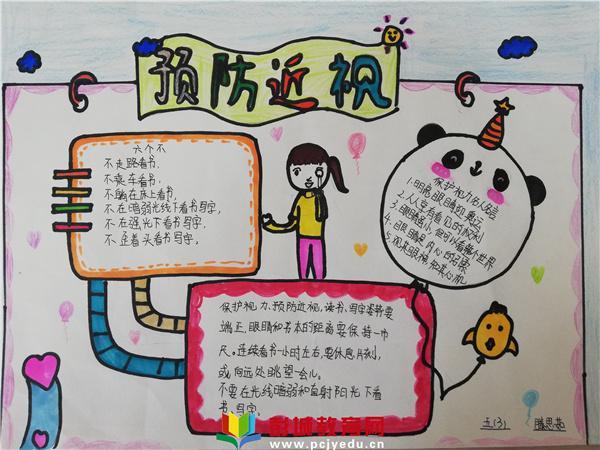 预防近视
六个不
不走路看书.
不乘车看书.
不躺在床上看书,
不在暗弱光线下看书写字,
不在强光下看书写字,
不歪着头看书写字,
保护视力名人名言
1.明亮眼睛如
2.人人享有看见的权利
3.眼睛虽小,但可以看整个世界
4.眼睛是内心的
5.视其眼神,知其心机
保护视力、预防近视,读书、写字姿势要
端正,眼睛和书本的距离要保持一市
尺。连续看书一小时左右,要休息片刻,
或向远处眺望一会儿。
不要在光线暗弱和直射阳光下看
书、写字。
教育网
www.pcjyedu.cn
五(3)
滕思茹